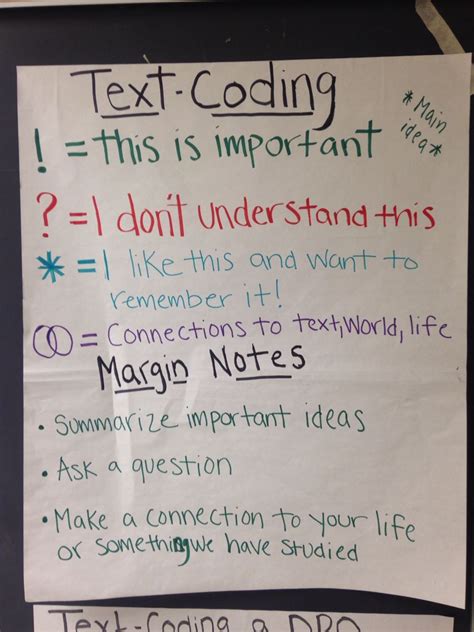 Text-Coding
! = this is important
*Main
idea*
? = I don't understand this
* = I like this and want to
remember it!
= Connections to text, World, life
Margin Notes
• Summarize important ideas
• Ask a question
• Make a connection to your life
or something we have studied
Text-Coding a